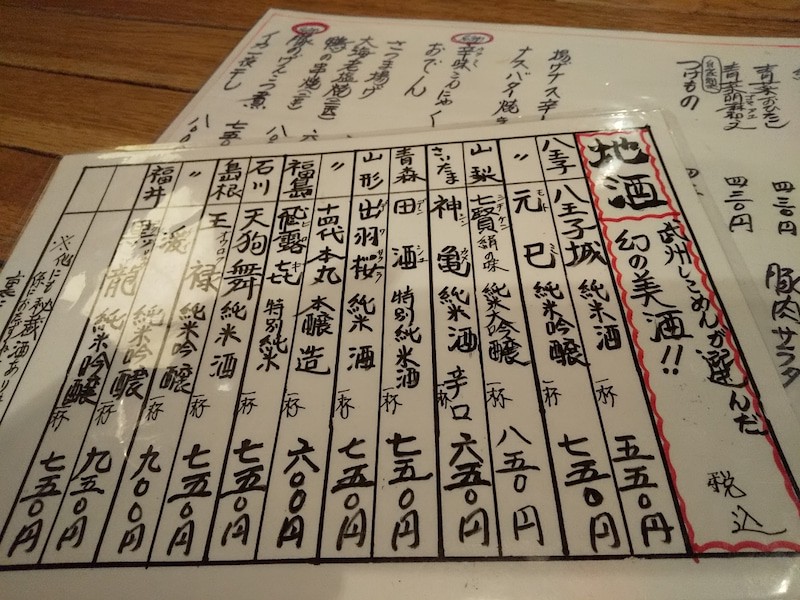 地酒
武州しこめんが選んだ
幻の美酒!!
税込
八王子 八王子城 純米酒 一杯 五五〇円
〃 元巳 純米吟醸 一杯 七五〇円
山梨 七賢 絹の味 純米大吟醸 一杯 八五〇円
さいたま 神亀 純米酒 辛口 一杯 六五〇円
青森 田酒 特別純米酒 七五〇円
山形 出羽桜 純米酒 一杯 七五〇円
〃 十四代本丸 本醸造 一杯 六〇〇円
福島 飛露喜 特別純米 一杯 七五〇円
石川 天狗舞 純米酒 一杯 七五〇円
島根 王禄 純米吟醸 一杯 九〇〇円
〃 純米吟醸 一杯 九五〇円
福井 黒龍 純米吟醸 一杯 七五〇円
※他にも秘蔵酒あり
豚肉サラダ
青菜おひたし 四三〇円
青菜胡麻和え 四三〇円
自家製 つけもの
揚げナス辛
ナスバター焼き
辛味こんにゃく
おでん
さつま揚げ
大海老塩焼
鴨の串焼
イカ一夜干し